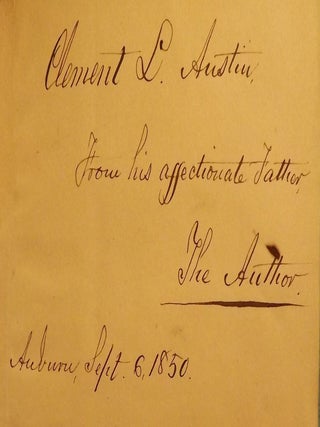 Clement L. Austin,
From his affectionate Father,
The Author.
Auburn, Sept. 6, 1850.